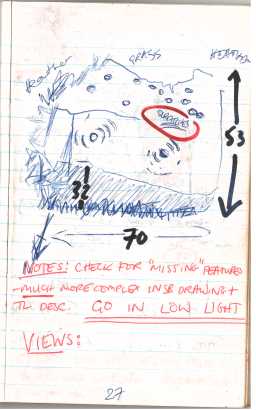 Heather GRASS HEATHER
53
32
70
NOTES: CHECK FOR "MISSING" FEATURES
- MUCH MORE COMPLEX IN SB DRAWING +
DESC. GO IN LOW LIGHT
VIEWS:
27